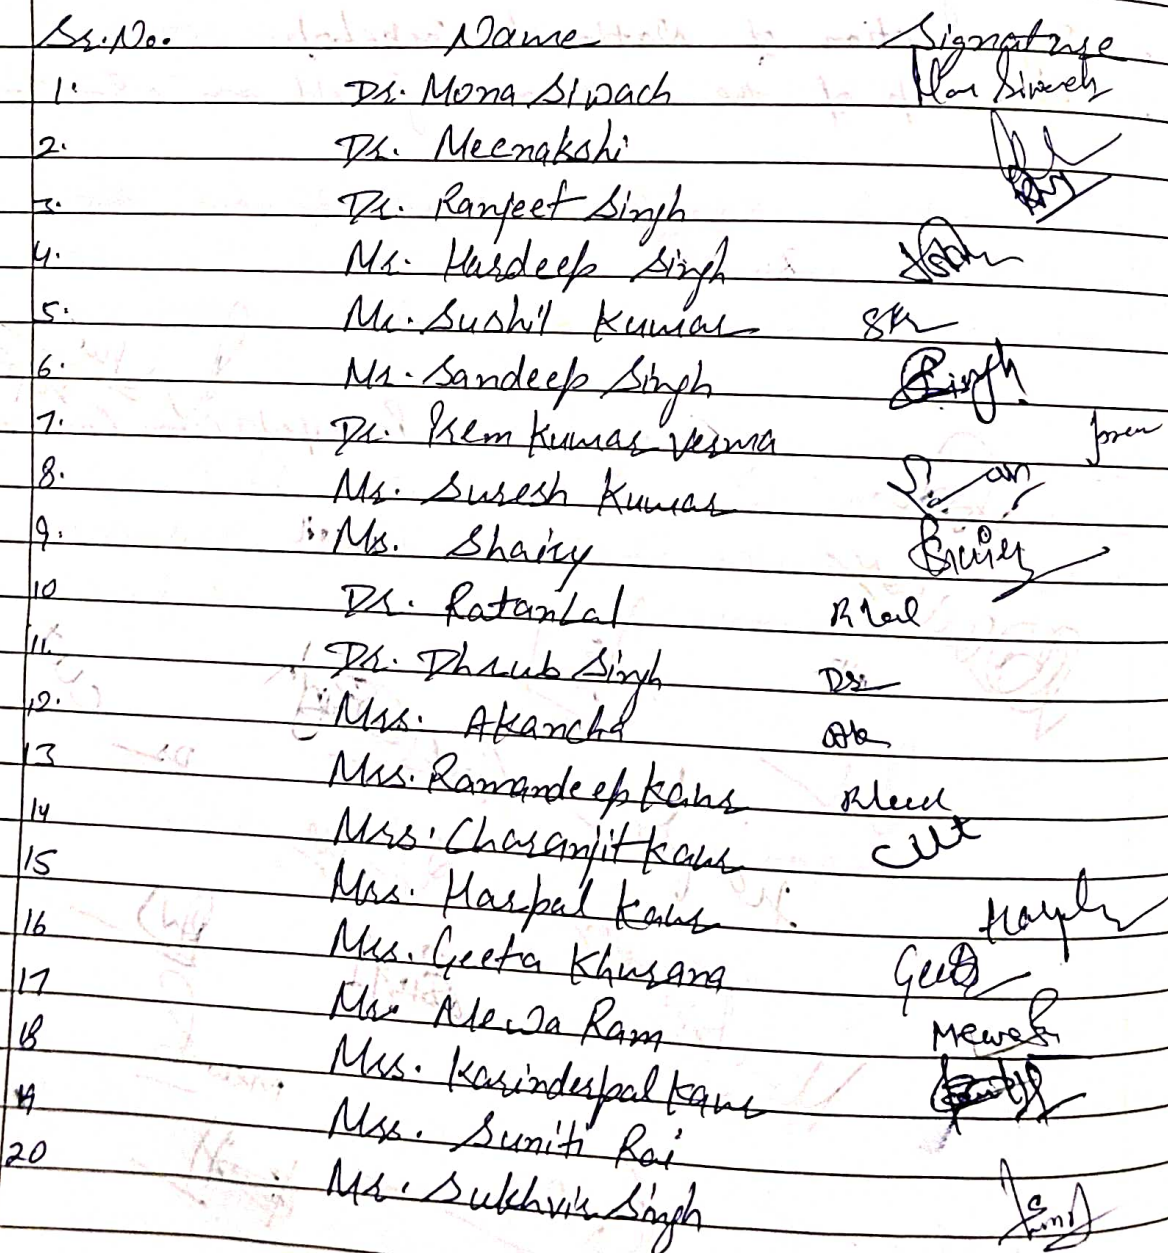 Sr. No. Name Signature
1. Dr. Mona Siwach
2. Dr. Meenakshi
3. Dr. Ranjeet Singh
4. Mr. Hardeep Singh
5. Mr. Sushil Kumar SK
6. Mr. Sandeep Singh Singh
7. Dr. Prem Kumar Verma Prem
8. Mr. Suresh Kumar
9. Ms. Shairy
10 Dr. Ratan Lal R Lal
11. Dr. Dhrub Singh DS
12. Mrs. Akancha AK
13 Mrs. Ramandeep Kaur
14 Mrs. Charanjit Kaur
15 Mrs. Harpal Kaur
16 Mrs. Geeta Khurana Geeta
17 Mr. Mewa Ram Mewa R
18 Mrs. Karinderpal Kaur
19 Mrs. Suniti Rai
20 Mr. Sukhvir Singh